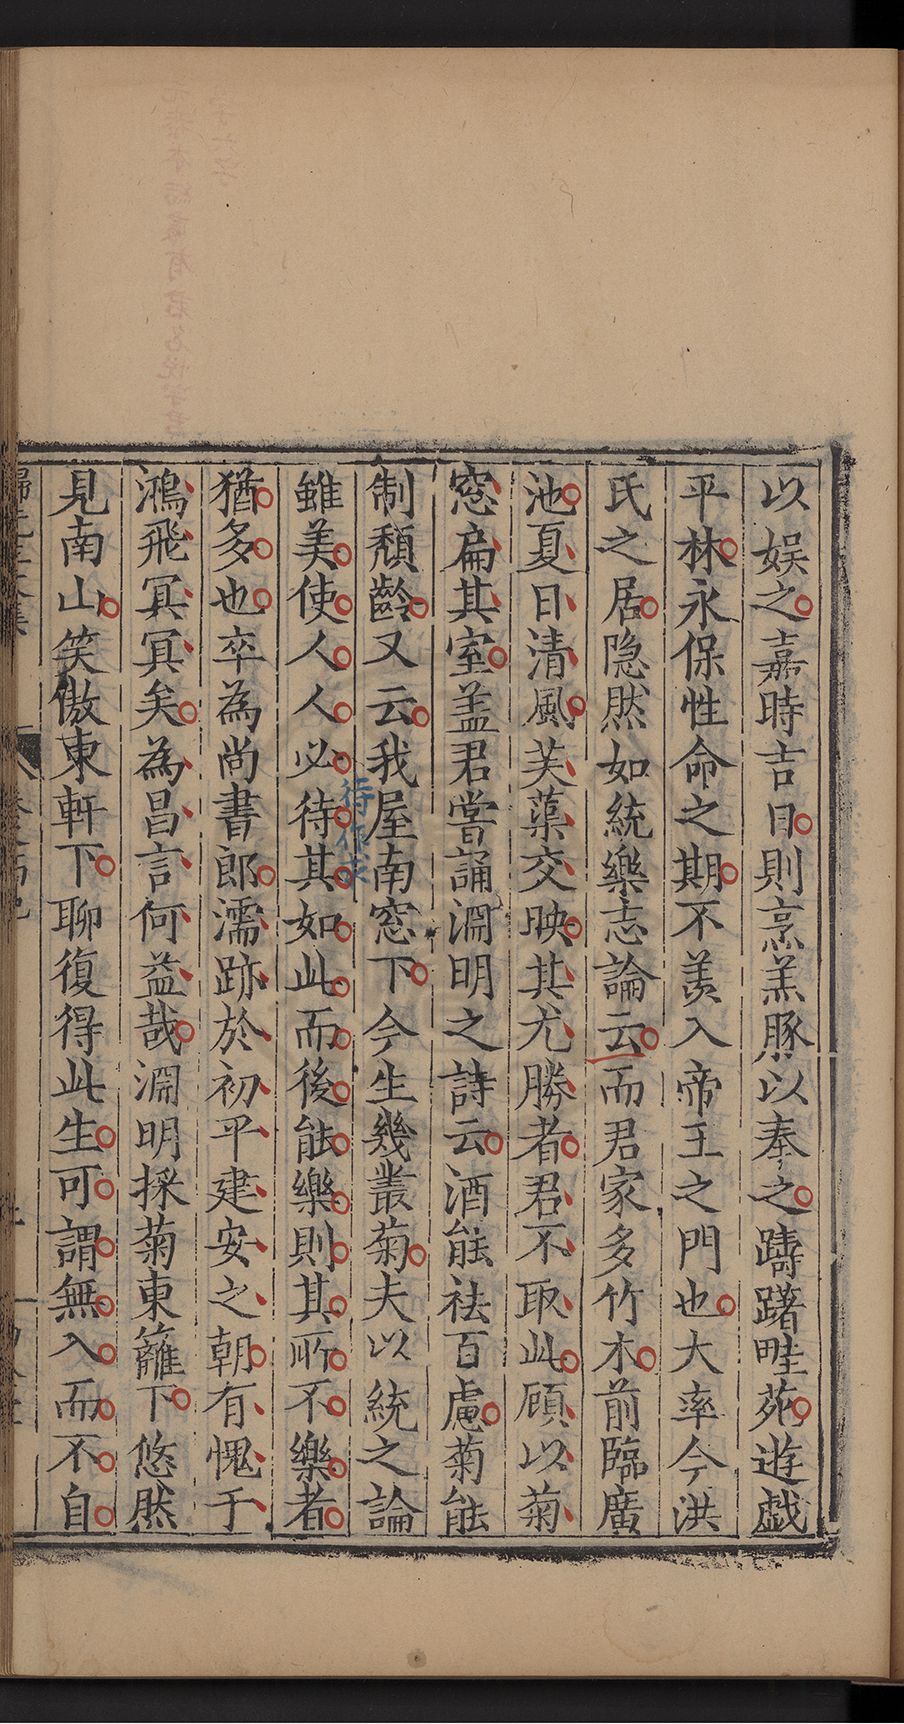 以娱之嘉時吉日則烹羔豚以奉之躊躇畦苑遊戯
平林永保性命之期不羨入帝王之門也大率今洪
氏之居隐然如統樂志論云而君家多竹木前臨廣
池夏日清風芙蕖交映其尤勝者君不取此顧以菊
窓扁其室盖君嘗誦淵明之詩云酒能祛百慮菊能
制頽齡又云我屋南窓下今生幾叢菊夫以統之論
待作求
雖美使人人必待其如此而後能樂則其所不樂者
猶多也卒為尚書郎濡跡於初平建安之朝有愧于
鴻飛冥冥矣為昌言何益哉淵明採菊東籬下悠然
見南山笑傲東軒下聊復得此生可謂無入而不自